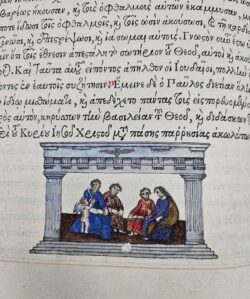 βαρέως ἤκουσαν, καὶ τοὺς ὀφθαλμοὺς αὐτῶν ἐκάμμυσαν
τοῖς ὀφθαλμοῖς, καὶ τοῖς ὠσὶν ἀκούσωσι, καὶ τῇ
συνῶσι, καὶ ἐπιστρέψωσι, καὶ ἰάσωμαι αὐτούς. Γνωστὸν οὖν
ὅτι τοῖς ἔθνεσιν ἀπεστάλη τὸ σωτήριον τοῦ Θεοῦ, αὐτοὶ καὶ
Καὶ ταῦτα αὐτοῦ εἰπόντος ἀπῆλθον οἱ Ἰουδαῖοι, πολλὴν
ἐν ἑαυτοῖς συζήτησιν. Ἔμεινε δὲ ὁ Παῦλος διετίαν ὅλην
ἰδίῳ μισθώματι, καὶ ἀπεδέχετο πάντας τοὺς
πρὸς αὐτὸν, κηρύσσων τὴν βασιλείαν τοῦ Θεοῦ, καὶ διδάσκων
τοῦ Κυρίου Ἰησοῦ Χριστοῦ μετὰ πάσης παρρησίας ἀκωλύτως